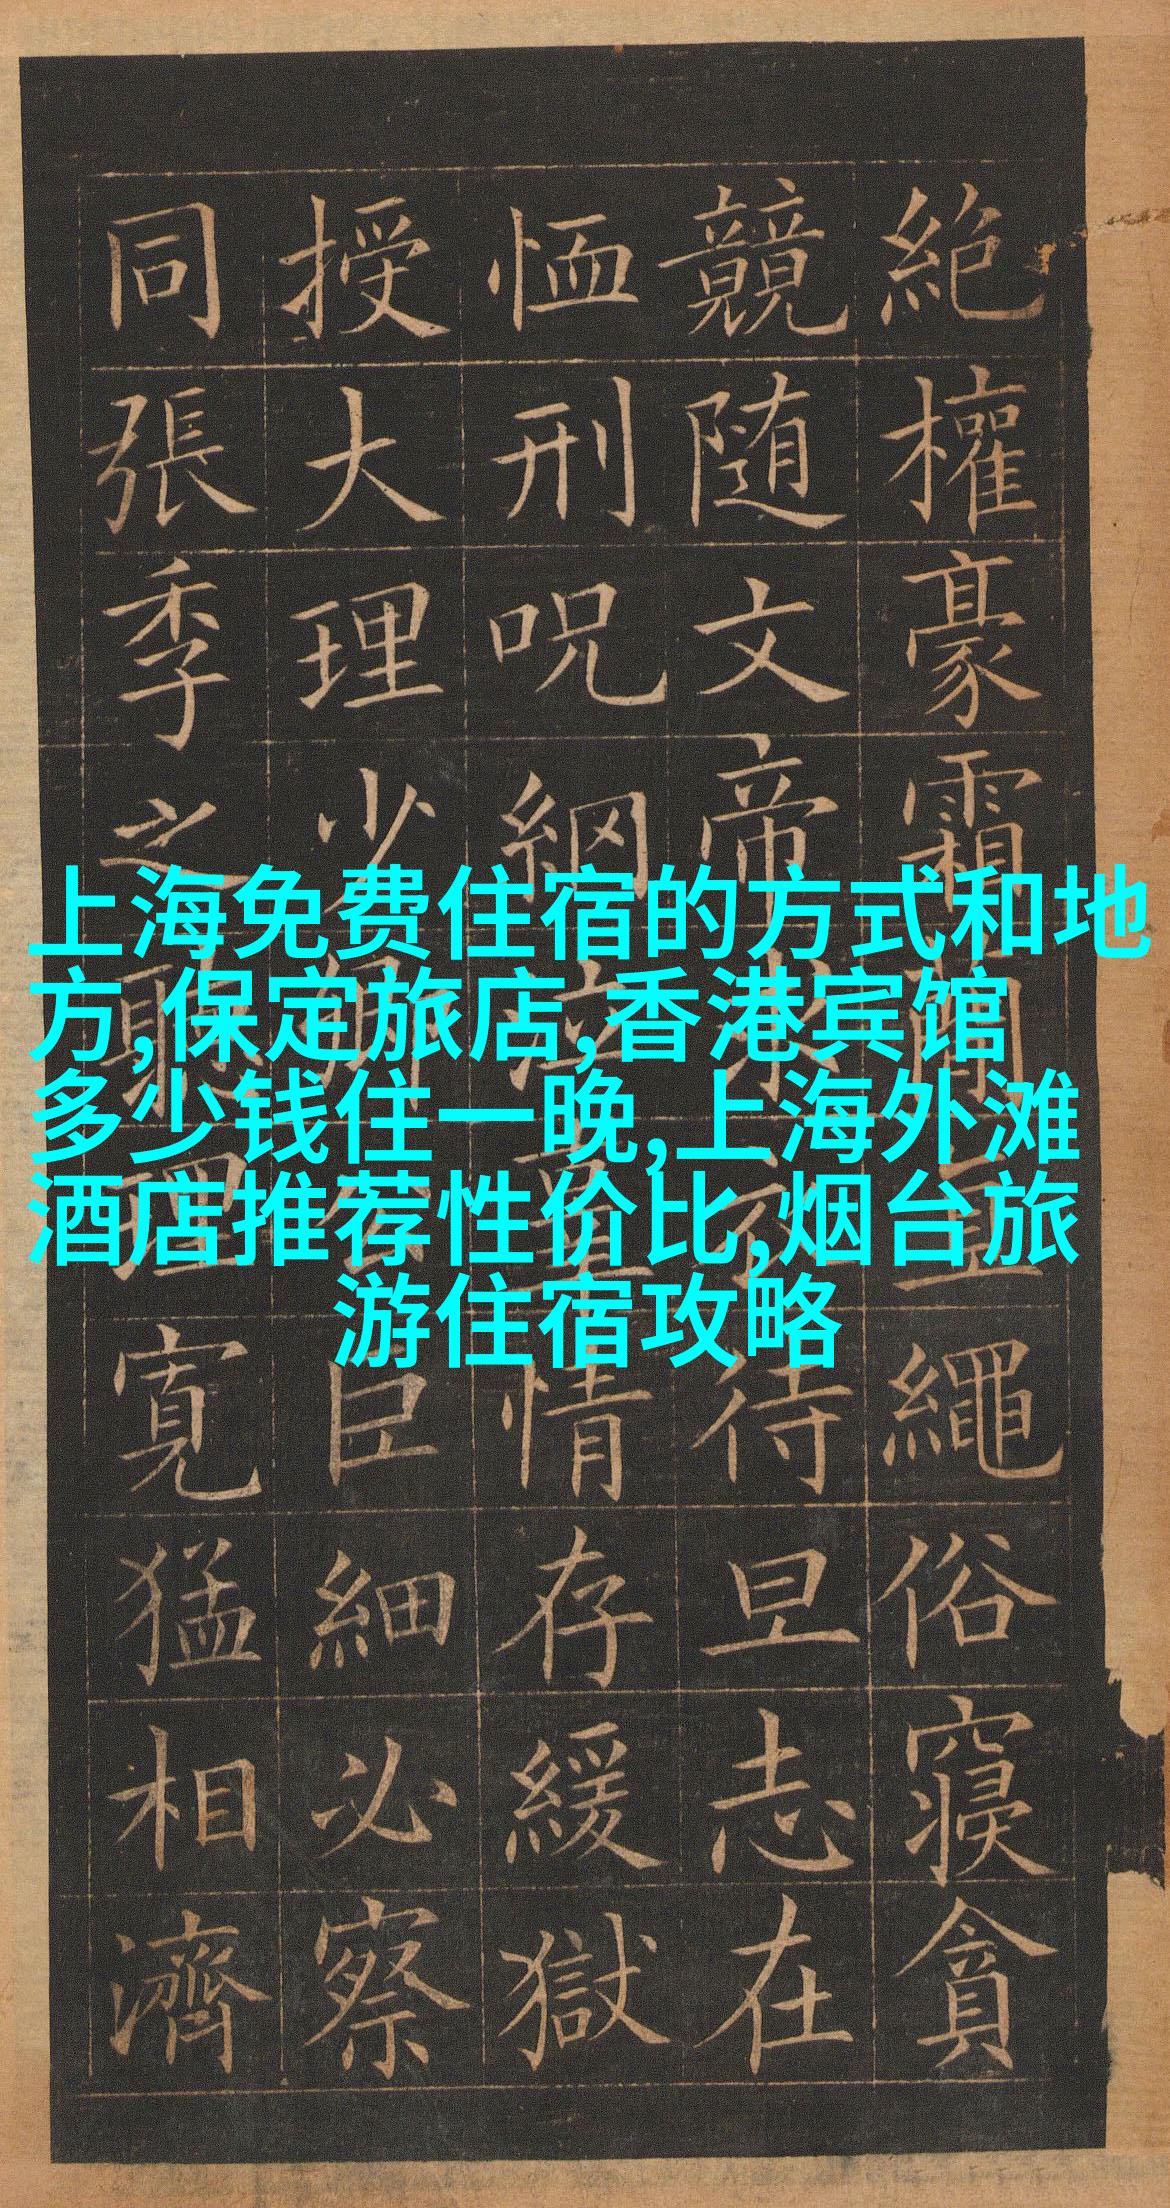 上海免费住宿的方式和地
方,保定旅店,香港宾馆
多少钱住一晚,上海外滩
酒店推荐性价比,烟台旅
游住宿攻略
絶權豪霜簡直繩俗寢貪
競随文帝求衣待旦志在
恤刑呪網泣辜情存緩獄
授大理少卿公巨細必察
同張季之聽理寬猛相濟